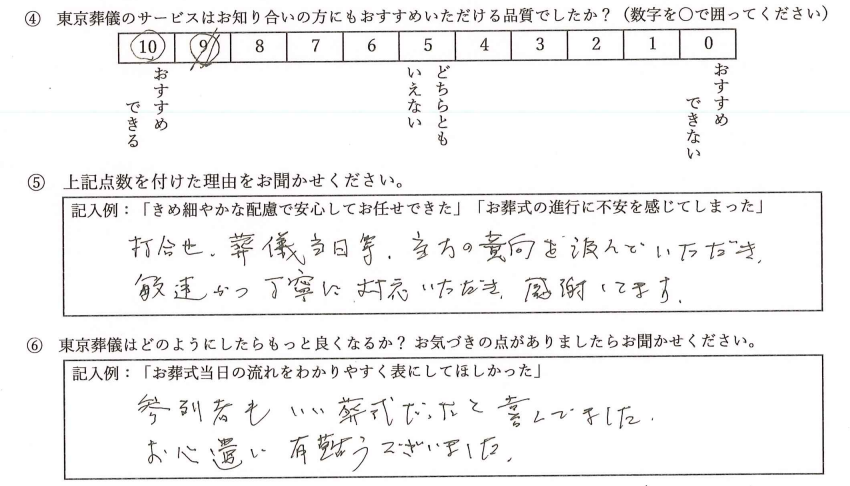 ④ 東京葬儀のサービスはお知り合いの方にもおすすめいただける品質でしたか？（数字を〇で囲ってください）
10 9 8 7 6 5 4 3 2 1 0
おすすめ
できる
どちらとも
いえない
おすすめ
できない
⑤ 上記点数を付けた理由をお聞かせください。
記入例：「きめ細やかな配慮で安心してお任せできた」「お葬式の進行に不安を感じてしまった」
打合せ、葬儀当日等、当方の意向を汲んでいただき、
敏速かつ丁寧に対応いただき、感謝してます。
⑥ 東京葬儀はどのようにしたらもっと良くなるか？ お気づきの点がありましたらお聞かせください。
記入例：「お葬式当日の流れをわかりやすく表にしてほしかった」
参列者もいい葬式だったと喜んでました。
お心遣い有難うございました。